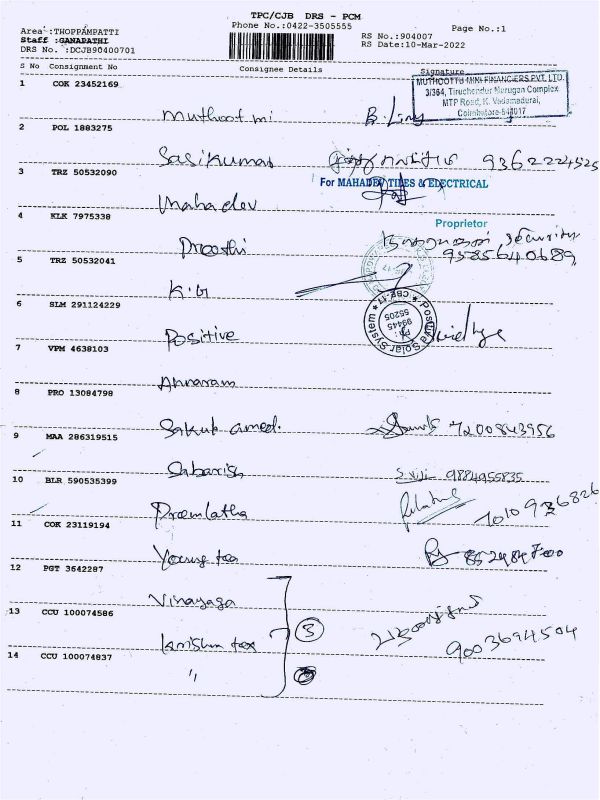 TPC/CJB DRS - PCM
Phone No.:0422-3505555
Page No.:1
Area :THOPPAMPATTI
Staff :GANAPATHI
DRS No. :DCJB90400701
RS No.:904007
RS Date:10-Mar-2022
S No Consignment No Consignee Details Signature
MUTHOOTTU MINI FINANCIERS PVT. LTD.
3/364, Tiruchendur Murugan Complex
MTP Road, K. Vadamadurai,
Coimbatore-641017
1 COK 23452169
Muthoot mi
2 POL 1883275
Sasikumar 9362224525
3 TRZ 50532090
For MAHADEV TILES & ELECTRICAL
Mahadev
Proprietor
4 KLK 7975338
Preethi security
9585640689
5 TRZ 50532041
K.G
6 SLM 291124229
Positive
Positive Solar System
CBE-17
Ph:
99445
55205
7 VPM 4638103
Annaram
8 PRO 13084798
Sakub amed. 7200843956
9 MAA 286319515
Sabarish 9884955835
10 BLR 590535399
Premlatha 7010936826
11 COK 23119194
Young tex
12 PGT 3642287
Vinayaga
13 CCU 100074586
Krishna tex 3
9003694504
14 CCU 100074837
"